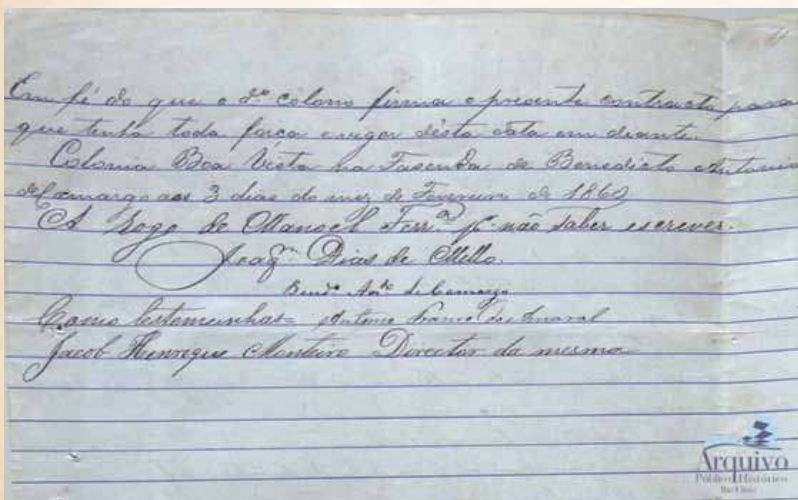 4
Em fé do que o d.º colono firma o presente contracto para
que tenha toda força e vigor désta data em deante.
Colonia Boa Vista na Fasenda de Benedicto Antonio
de Camargo aos 3 dias do mez de Fevereiro de 1862
A Rogo de Manoel Ferr.ª p.r não saber escrever.
Joaq.m Dias de Mello.
Bend.º Ant.º de Camargo
Como testemunhas= Antonio Franco do Amaral
Jacob Henrique Monteiro Director da mesma
Arquivo
Público e Histórico
Rio Claro